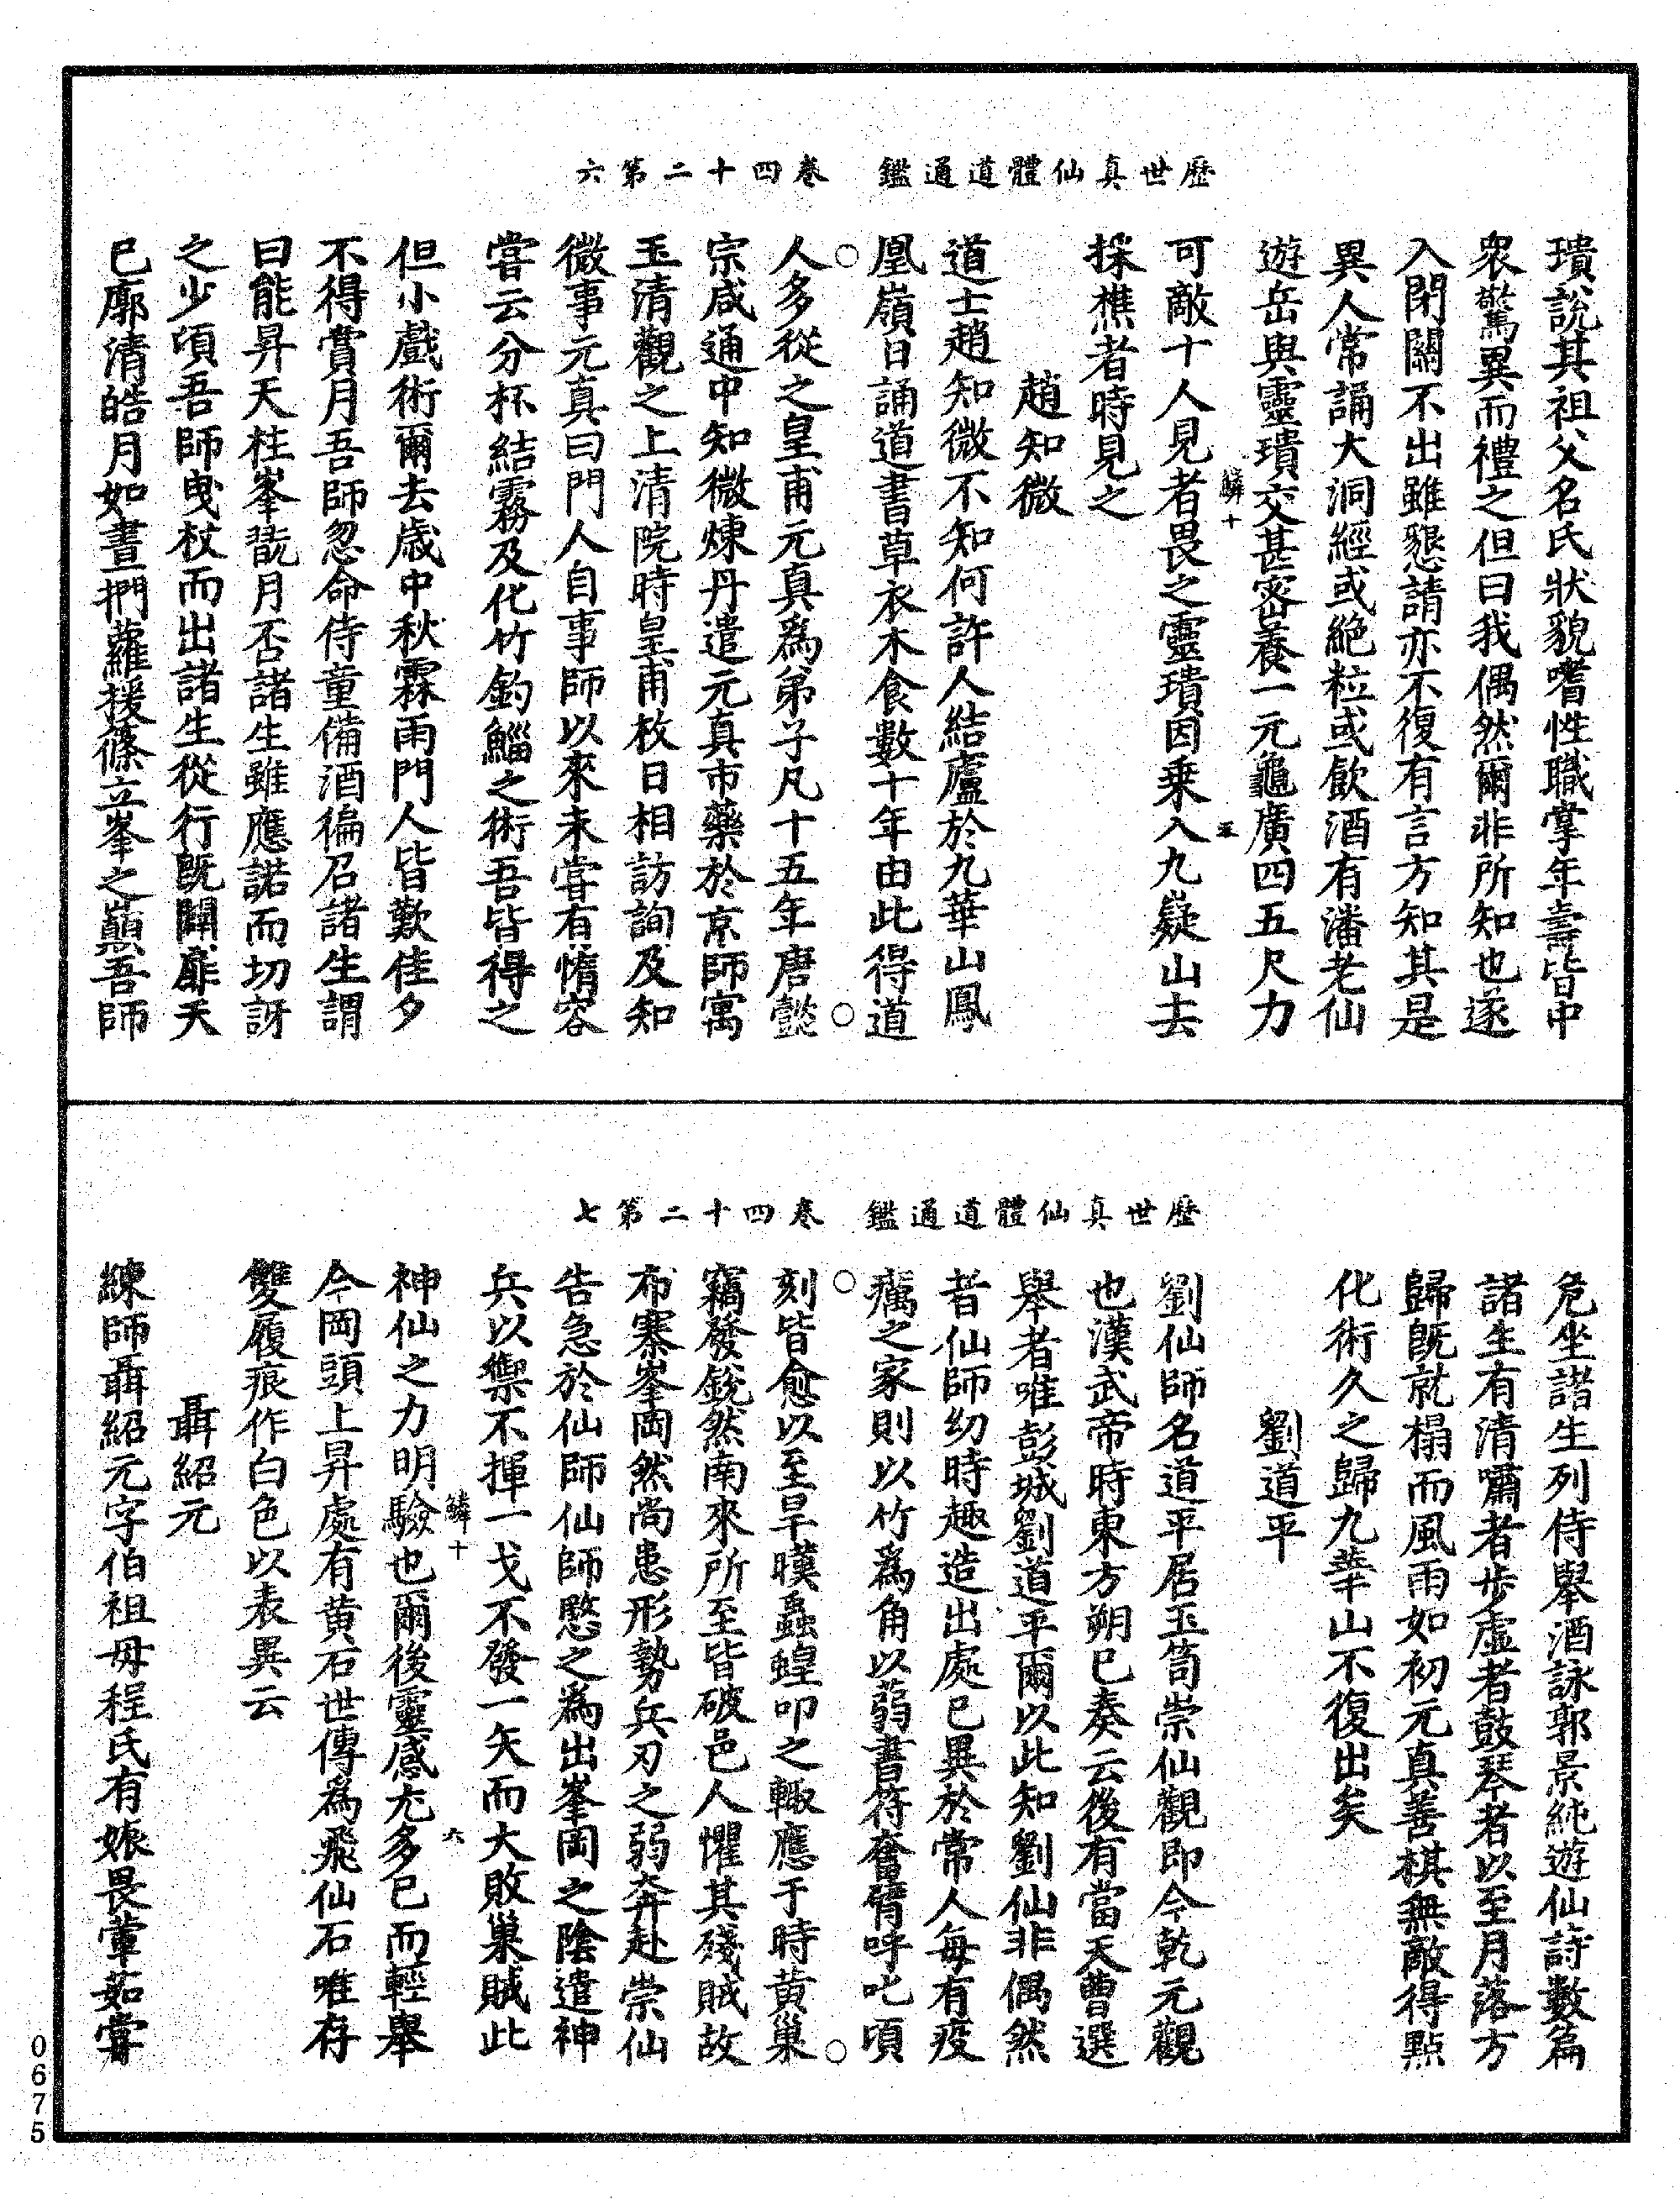 歷世真仙體道通鑑　卷四十二第六
璝說其祖父名氏狀貌嗜性職掌年壽皆中
衆驚異而禮之但曰我偶然爾非所知也遂
入閉關不出雖懇請亦不復有言方知其是
異人常誦大洞經或絶粒或飲酒有潘老仙
遊岳與靈璝交甚密養一元龜廣四五尺力
鱗十　五
可敵十人見者畏之靈璝因乗入九嶷山去
採樵者時見之
趙知微
道士趙知微不知何許人結廬於九華山鳳
凰嶺日誦道書草衣木食數十年由此得道
人多從之皇甫元真爲弟子凡十五年唐懿
宗咸通中知微煉丹遣元真市藥於京師寓
玉清觀之上清院時皇甫枚日相訪詢及知
微事元真曰門人自事師以來未嘗有惰容
嘗云分杯結霧及化竹釣鯔之術吾皆得之
但小戲術爾去歲中秋霖雨門人皆歎佳夕
不得賞月吾師忽命侍童備酒徧召諸生謂
曰能昇天柱峯翫月否諸生雖應諾而切訝
之少頃吾師曳杖而出諸生從行既闢扉天
已廓清皓月如晝捫蘿援篠立峯之巔吾師
歷世真仙體道通鑑　卷四十二第七
危坐諸生列侍舉酒詠郭景純遊仙詩數篇
諸生有清嘯者步虛者鼓琴者以至月落方
歸既就榻而風雨如初元真善棋無敵得點
化術久之歸九華山不復出矣
劉道平
劉仙師名道平居玉笥崇仙觀即今乾元觀
也漢武帝時東方朔已奏云後有當天曹選
舉者唯彭城劉道平爾以此知劉仙非偶然
者仙師幼時趣造出處已異於常人每有疫
癘之家則以竹爲角以蒻書符奮臂呼叱頃
刻皆愈以至旱暵蟲蝗叩之輙應于時黄巢
竊發銳然南來所至皆破邑人懼其殘賊故
布寨峯岡然尚患形勢兵刃之弱奔赴崇仙
告急於仙師仙師愍之爲出峯岡之陰遣神
兵以禦不揮一戈不發一矢而大敗巢賊此
鱗十　六
神仙之力明驗也爾後靈感尤多已而輕舉
今岡頭上昇處有黄石世傳爲飛仙石唯存
雙履痕作白色以表異云
聶紹元
練師聶紹元字伯祖母程氏有娠畏葷茹嘗
0675